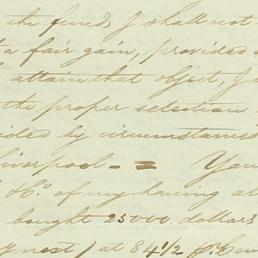 the funds I shall not
a fair gain, provided
attain that object, I
the proper selection
ided by circumstances
Liverpool - = You
& Co. of my having
bought 25000 dollars
nest) at 84 1/2 p. Cen